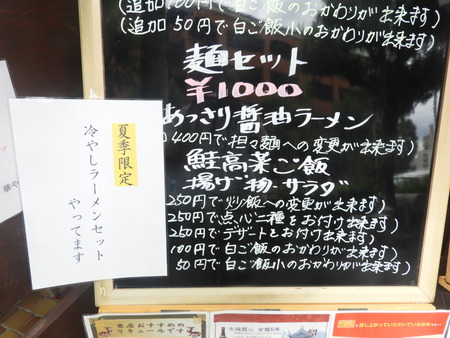 (追加100円で白ご飯のおかわりが出来ます)
(追加50円で白ご飯小のおかわりが出来ます)
麺セット
¥1000
あっさり醤油ラーメン
(400円で担々麺への変更が出来ます)
鮭高菜ご飯
揚げ物・サラダ
250円で炒飯への変更が出来ます)
250円で点心二種をお付け出来ます)
250円でデザートをお付け出来ます)
100円で白ご飯のおかわりが出来ます)
50円で白ご飯小のおかわりが出来ます)
夏季限定
冷やしラーメンセット
やってます
当店おすすめの
リキュールです